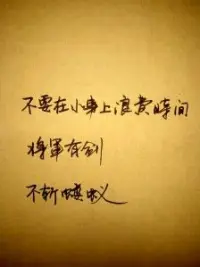 不要在小事上浪费时间
将军有剑
不斩蝼蚁